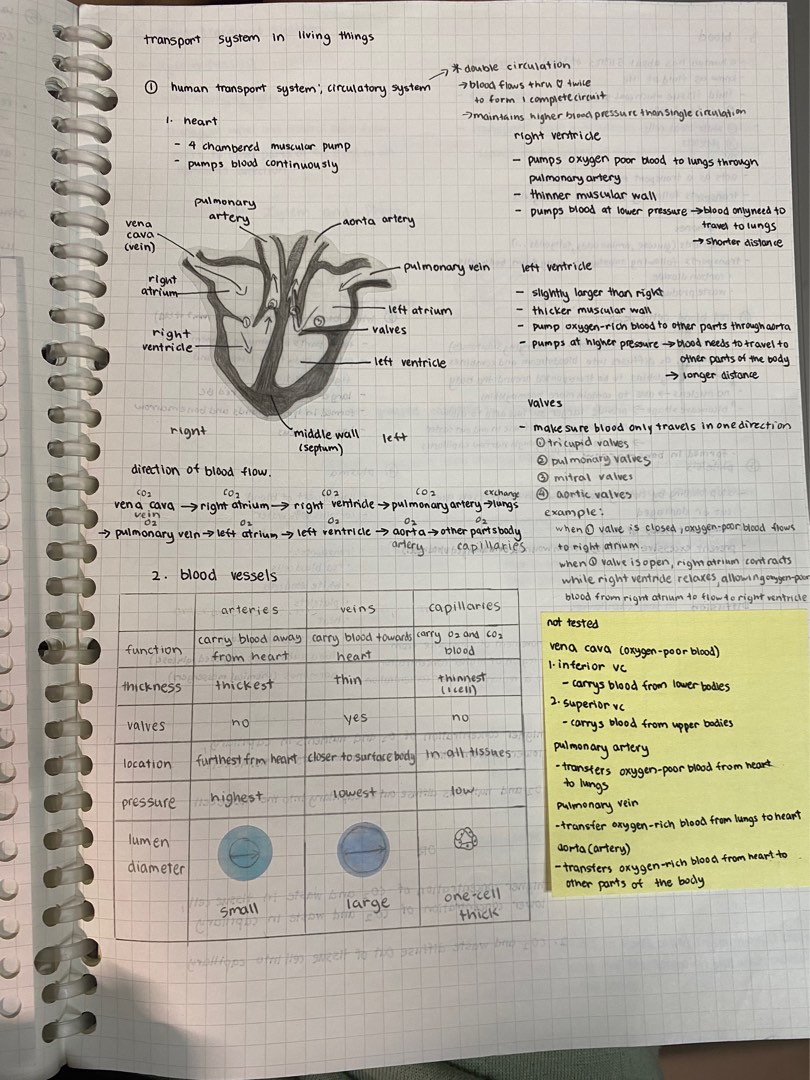 transport system in living things
① human transport system; circulatory system
* double circulation
→ blood flows thru ♡ twice
to form 1 complete circuit
→ maintains higher blood pressure than single circulation
1. heart
- 4 chambered muscular pump
- pumps blood continuously
pulmonary
artery
aorta artery
vena
cava
(vein)
pulmonary vein
right
atrium
left atrium
valves
right
ventricle
left ventricle
①
②
③
④
middle wall
(septum)
right
left
right ventricle
- pumps oxygen poor blood to lungs through
pulmonary artery
- thinner muscular wall
- pumps blood at lower pressure → blood only need to
travel to lungs
→ shorter distance
left ventricle
- slightly larger than right
- thicker muscular wall
- pump oxygen-rich blood to other parts through aorta
- pumps at higher pressure → blood needs to travel to
other parts of the body
→ longer distance
valves
- make sure blood only travels in one direction
① tricupid valves
② pulmonary valves
③ mitral valves
④ aortic valves
example:
when ① valve is closed, oxygen-poor blood flows
to right atrium
when ① valve is open, right atrium contracts
while right ventricle relaxes, allowing oxygen-poor
blood from right atrium to flow to right ventricle
direction of blood flow.
CO2 CO2 CO2 CO2 exchange
vena cava → right atrium → right ventricle → pulmonary artery → lungs
vein
O2 O2 O2 O2 O2
→ pulmonary vein → left atrium → left ventricle → aorta → other parts body
artery capillaries
2. blood vessels
arteries veins capillaries
function
carry blood away
from heart
carry blood towards
heart
carry O2 and CO2
blood
thickness thickest thin thinnest
(1 cell)
valves no yes no
location furthest frm heart closer to surface body in all tissues
pressure highest lowest low
lumen
diameter
small large one-cell
thick
not tested
vena cava (oxygen-poor blood)
1. inferior vc
- carrys blood from lower bodies
2. superior vc
- carrys blood from upper bodies
pulmonary artery
- transfers oxygen-poor blood from heart
to lungs
pulmonary vein
- transfer oxygen-rich blood from lungs to heart
aorta (artery)
- transfers oxygen-rich blood from heart to
other parts of the body